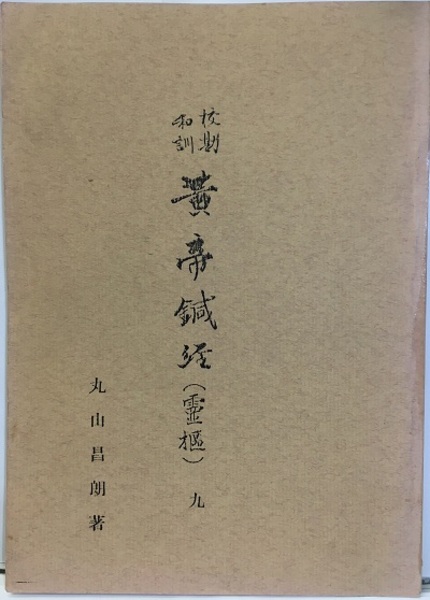 校勘
和訓
黄帝鍼経（靈樞）九
丸山昌朗著